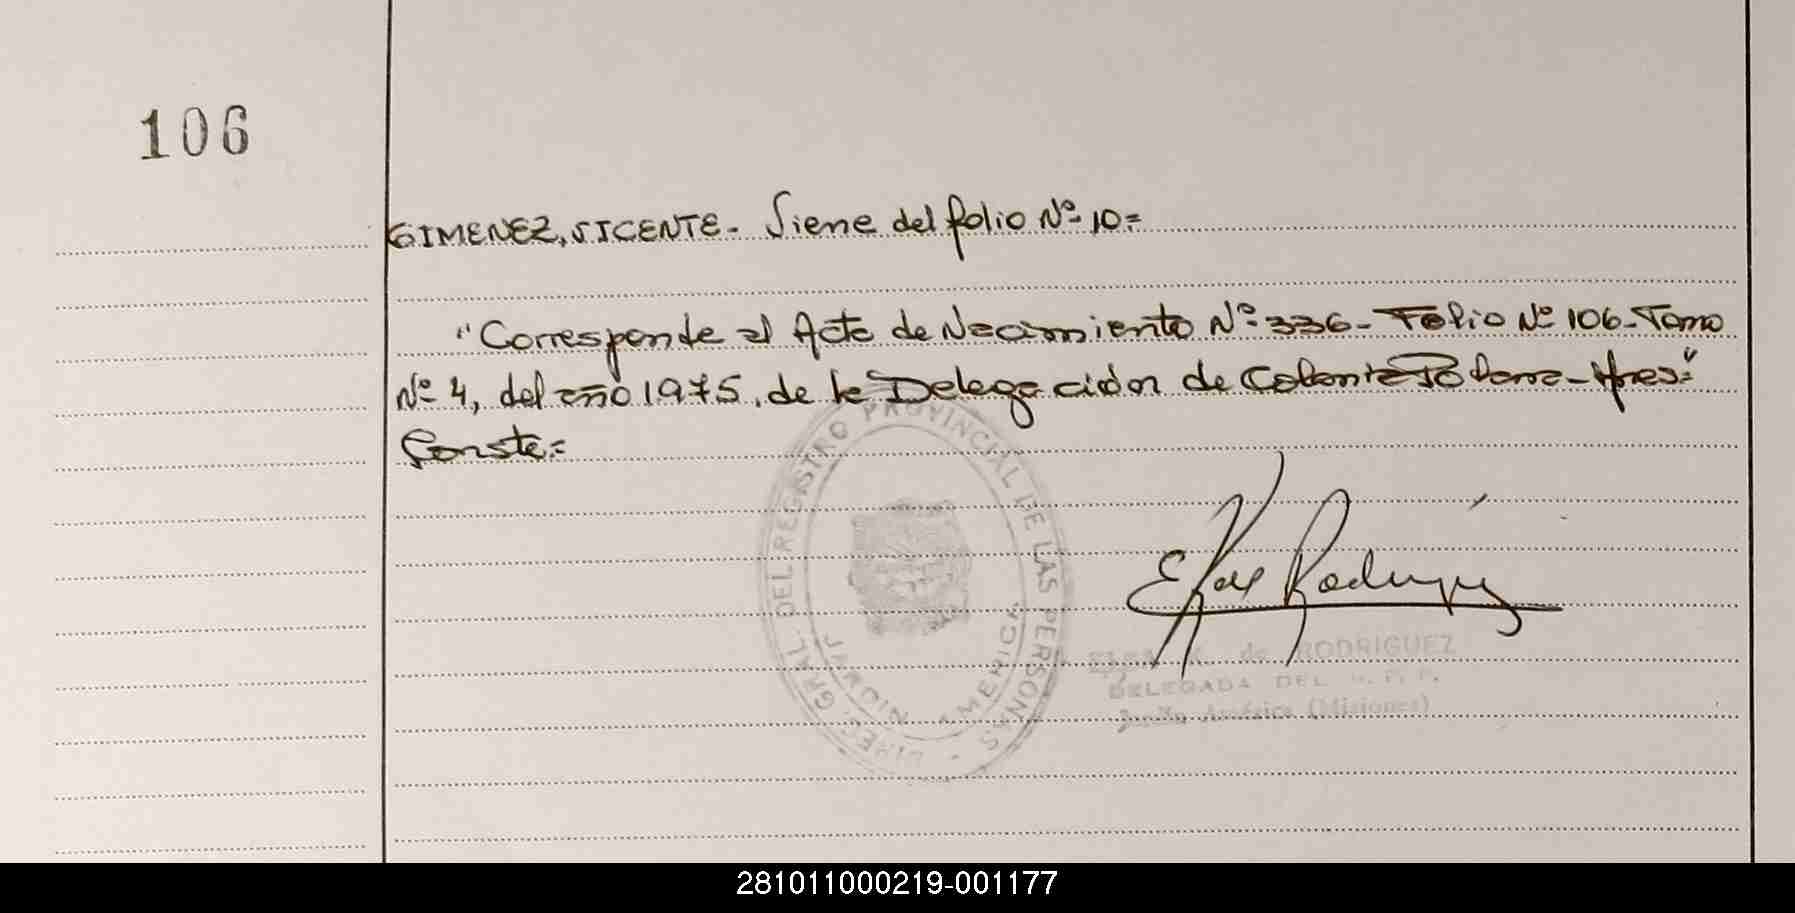 106
GIMENEZ, VICENTE.- Viene del folio Nº 10=
"Corresponde al Acta de Nacimiento Nº 336- Folio Nº 106- Tomo
Nº 4, del año 1975, de la Delegación de Colonia Polana- Mnes="
Conste.=
DIREC. GRAL. DEL REGISTRO PROVINCIAL DE LAS PERSONAS
JARDIN AMERICA
Rodriguez
de RODRIGUEZ
DELEGADA DEL R. P. P.
Jardín América (Misiones)
281011000219-001177